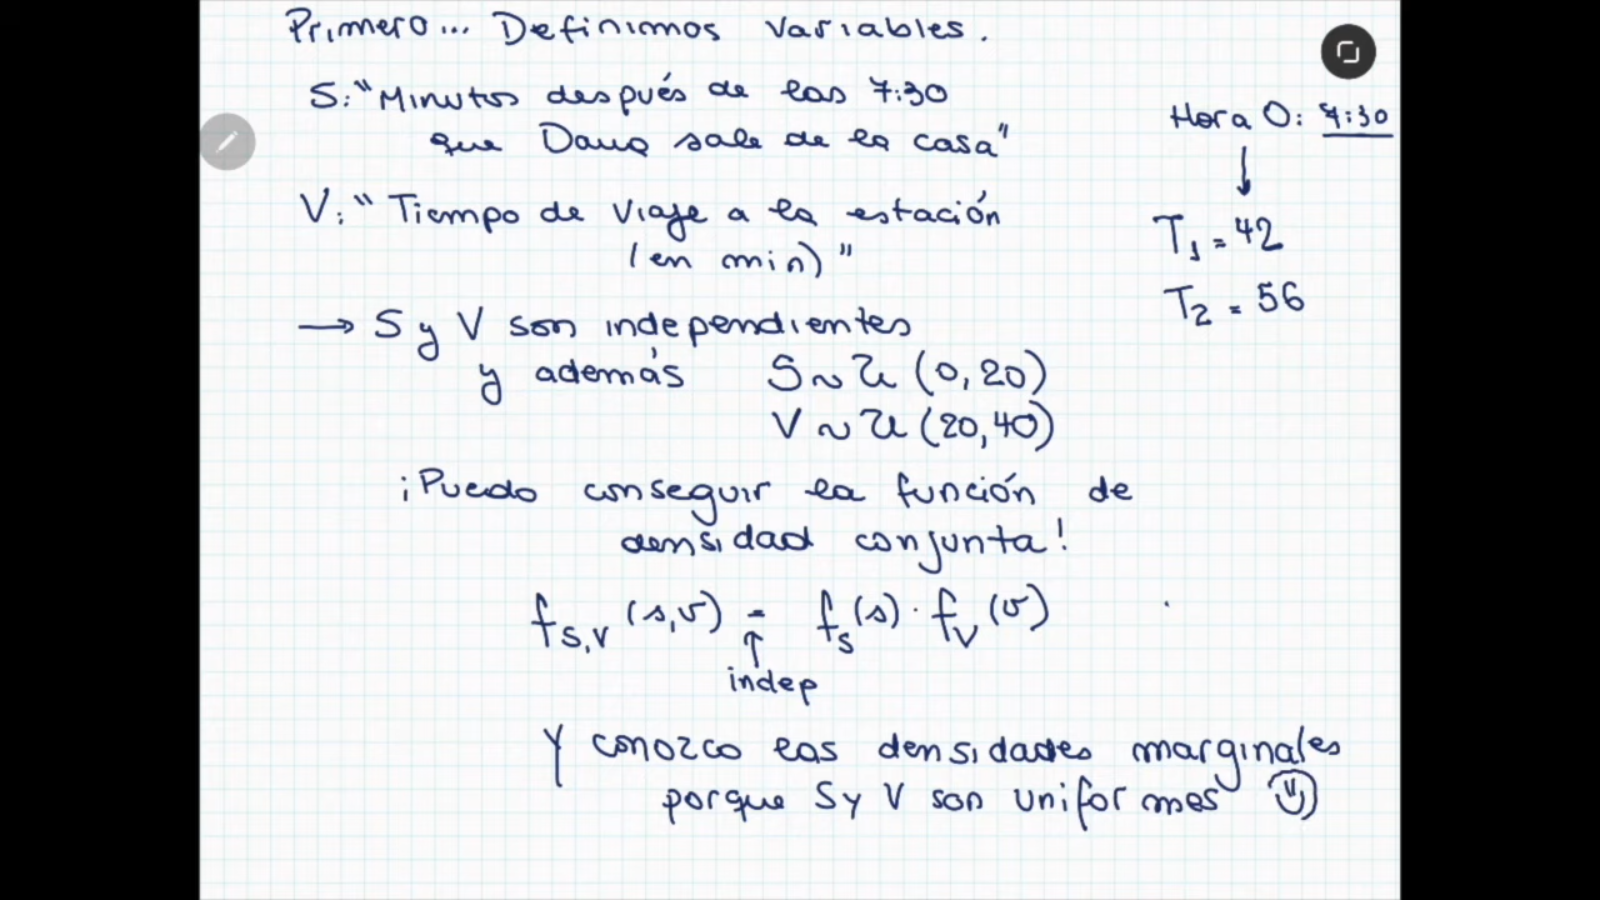 Primero... Definimos variables.
S: "Minutos después de las 7:30
que Dana sale de la casa"
V: "Tiempo de viaje a la estación
(en min)"
Hora 0: 7:30
↓
T₁ = 42
T₂ = 56
→ S y V son independientes
y además S ~ U (0,20)
V ~ U (20,40)
¡Puedo conseguir la función de
densidad conjunta!
f_{S,V} (s,v) = f_S(s) · f_V(v)
↑
indep
Y conozco las densidades marginales
porque S y V son uniformes